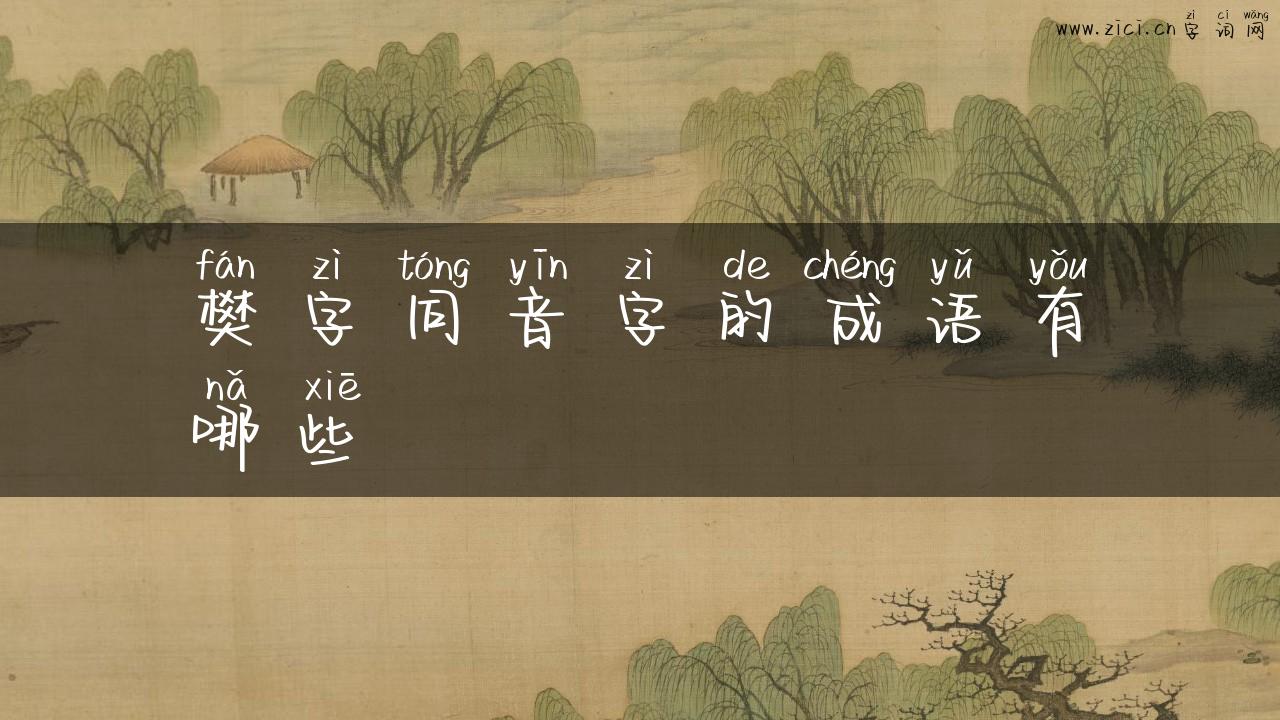 zì cí wǎng
www.zici.cn 字词网
fán zì tóng yīn zì de chéng yǔ yǒu
樊字同音字的成语有
nǎ xiē
哪些